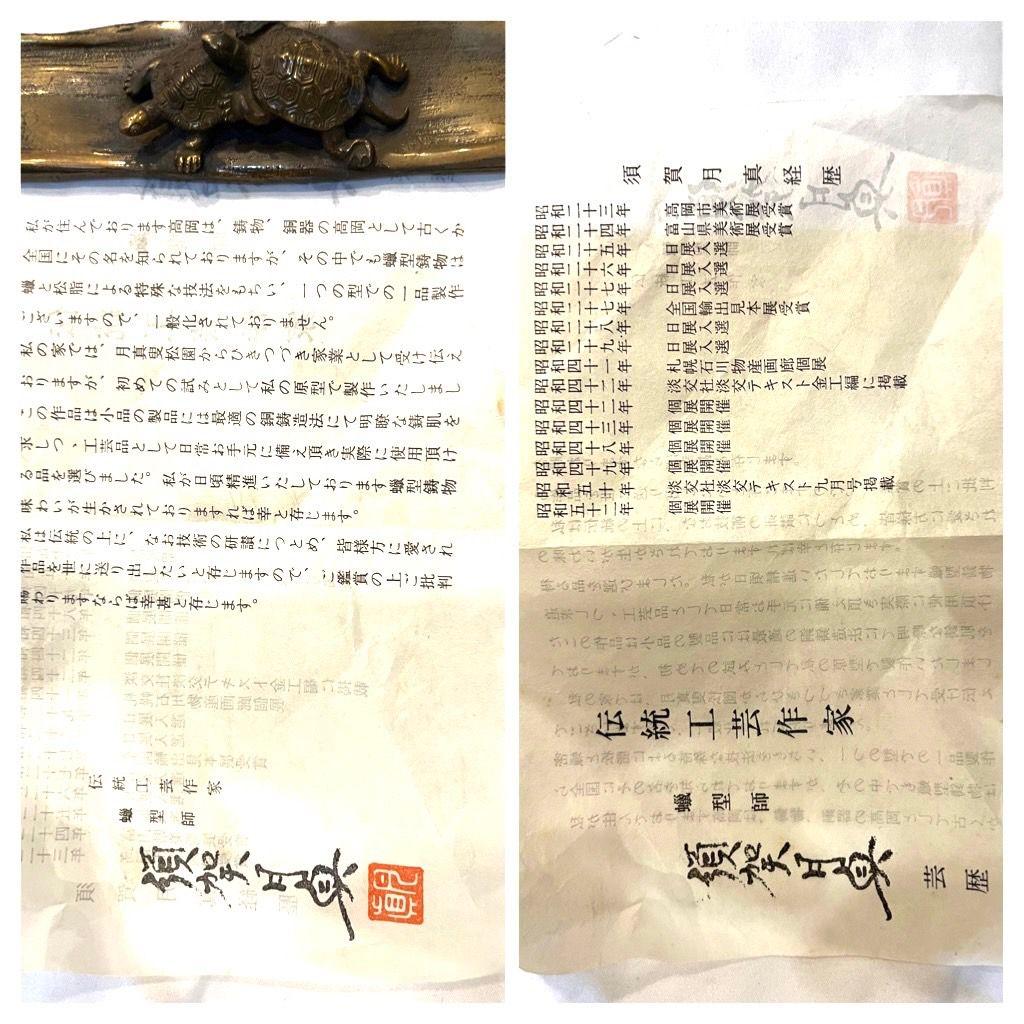 私が住んでおります高岡は、鋳物、銅器の高岡として古くか
全国にその名を知られておりますが、その中でも蠟型鋳物は
蠟と松脂による特殊な技法をもちい、一つの型での一品製作
ございますので、一般化されておりません。
私の家では、月真叟松園からひきつづき家業として受け伝え
おりますが、初めての試みとして私の原型で製作いたしまし
この作品は小品の製品には最適の銅鋳造法にて明瞭な鋳肌を
求しつ、工芸品として日常お手元に備え頂き実際に使用頂け
る品を選びました。私が日頃精進いたしております蠟型鋳物
味わいが生かされておりますれば幸と存じます。
私は伝統の上に、なお技術の研讃につとめ、皆様方に愛され
作品を世に送り出したいと存じますので、ご鑑賞の上ご批判
賜わりますならば幸甚と存じます。
伝統工芸作家
蠟型師
須賀月真
須賀月真経歴
昭和二十三年 高岡市美術展受賞
昭和二十四年 富山県美術展受賞
昭和二十五年 日展入選
昭和二十六年 日展入選
昭和二十七年 日展入選
昭和二十七年 全国輸出見本展受賞
昭和二十八年 日展入選
昭和二十九年 日展入選
昭和四十一年 札幌石川物産画廊個展
昭和四十二年 淡交社淡交テキスト金工編に掲載
昭和四十二年 個展開催
昭和四十三年 個展開催
昭和四十八年 個展開催
昭和四十九年 個展開催
昭和五十一年 淡交社淡交テキスト九月号掲載
昭和五十二年 個展開催
伝統工芸作家
蠟型師
須賀月真
芸歴